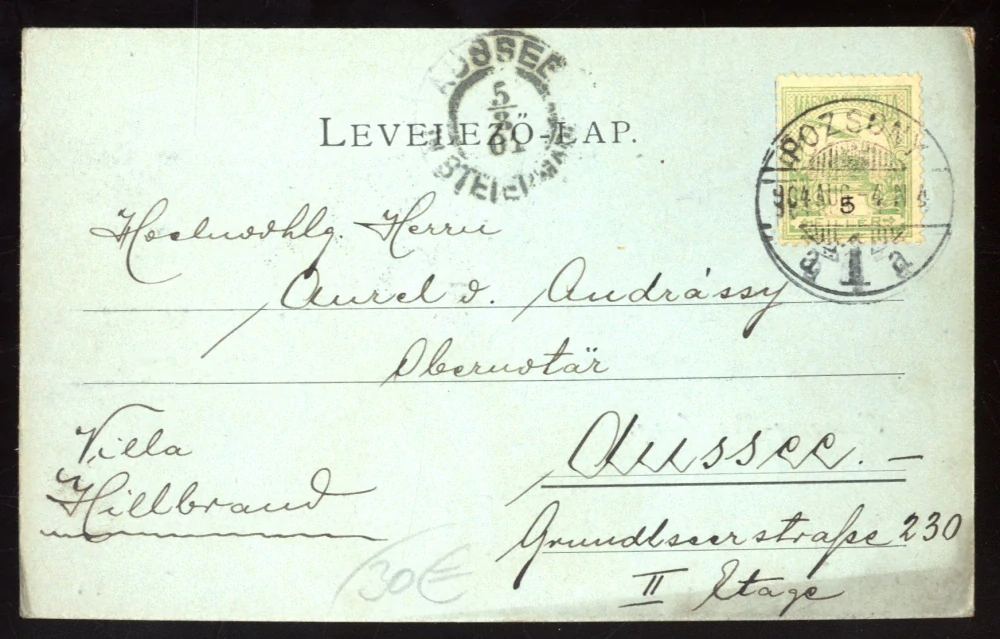 LEVELEZŐ-LAP.
AUSSEE
5
8
04
STEIERMARK
POZSONY
904 AUG 4
1
a a
5
FILLER
Hochwohlg. Herrn
Aurel v. Andrássy
Obernotär
Aussee. –
Villa
Hillbrand
Grundlseerstraße 230
II Etage
30€